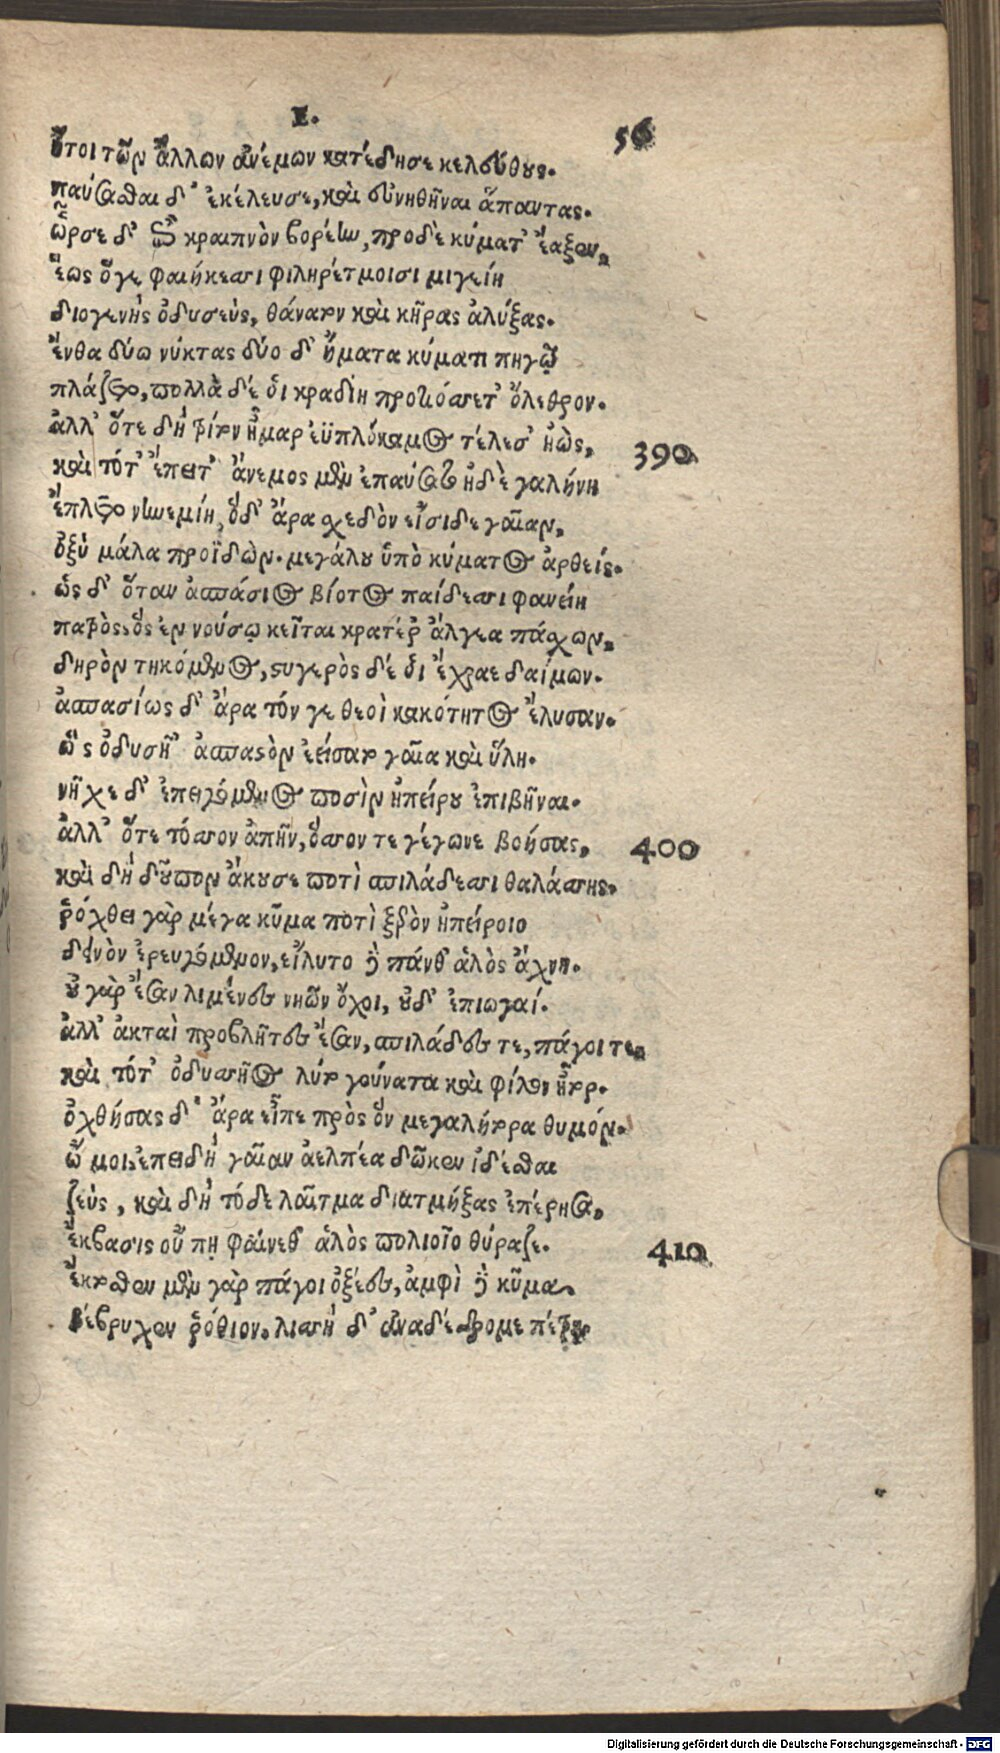 E. 56
ἤτοι τῶν ἄλλων ἀνέμων κατέδησε κελεύθους.
παύσασθαι δ' ἐκέλευσε, καὶ συνηθῆναι ἅπαντας.
ὦρσε δ' ἐπὶ κραιπνὸν βορέην, προδὲ κύματ' ἔαξεν,
ἕως ὅγε φαιήκεσσι φιληρέτμοισι μιγείη
διογενὴς ὀδυσεύς, θάνατον καὶ κῆρας ἀλύξας.
ἔνθα δύω νύκτας δύο δ' ἤματα κύματι πηγῷ
πλάζετο, πολλὰ δέ ὁι κραδίη προτιόσσετ' ὄλεθρον.
ἀλλ' ὅτε δὴ τρίτον ἦμαρ ἐϋπλόκαμος τέλεσ' ἠὼς, 390
καὶ τότ' ἔπειτ' ἄνεμος μὲν ἐπαύσατο ἠδὲ γαλήνη
ἔπλετο νηνεμίη, ὁδ' ἄρα σχεδὸν εἴσιδε γαῖαν,
ὀξὺ μάλα προϊδὼν. μεγάλου ὑπὸ κύματος ἀρθείς.
ὡς δ' ὅταν ἀσπάσιος βίοτος παίδεσσι φανείη
πατρὸς, ὃς ἐν νούσῳ κεῖται κρατέρ' ἄλγεα πάσχων,
δηρὸν τηκόμενος, στυγερὸς δέ ὁι ἔχραε δαίμων.
ἀσπασίως δ' ἄρα τόν γε θεοὶ κακότητος ἔλυσαν.
ὣς ὀδυσῆ' ἀσπαστὸν ἐείσατο γαῖα καὶ ὕλη.
νῆχε δ' ἐπειγόμενος ποσὶν ἠπείρου ἐπιβῆναι.
ἀλλ' ὅτε τόσσον ἀπῆν, ὅσσον τε γέγωνε βοήσας, 400
καὶ δὴ δοῦπον ἄκουσε ποτὶ σπιλάδεσσι θαλάσσης.
ῥόχθει γὰρ μέγα κῦμα ποτὶ ξερὸν ἠπείροιο
δεινὸν ἐρευγόμενον, εἴλυτο δὲ πάνθ' ἁλὸς ἄχνη.
οὐ γὰρ ἔσαν λιμένες νηῶν ὄχοι, οὐδ' ἐπιωγαί.
ἀλλ' ἀκταὶ προβλῆτες ἔσαν, σπιλάδες τε, πάγοι τε,
καὶ τότ' ὀδυσσῆος λύτο γούνατα καὶ φίλον ἦτορ.
ὀχθήσας δ' ἄρα εἶπε πρὸς ὃν μεγαλήτορα θυμόν.
ὤ μοι, ἐπειδὴ γαῖαν ἀελπέα δῶκεν ἰδέσθαι
ζεύς, καὶ δὴ τόδε λαῖτμα διατμήξας ἐπέρησα,
ἔκβασις οὔ πῃ φαίνεθ' ἁλὸς πολιοῖο θύραζε. 410
ἔκτοσθεν μὲν γὰρ πάγοι ὀξέες, ἀμφὶ δὲ κῦμα
βέβρυχεν ῥόθιον, λισσὴ δ' ἀναδέδρομε πέτρη
Digitalisierung gefördert durch die Deutsche Forschungsgemeinschaft - DFG